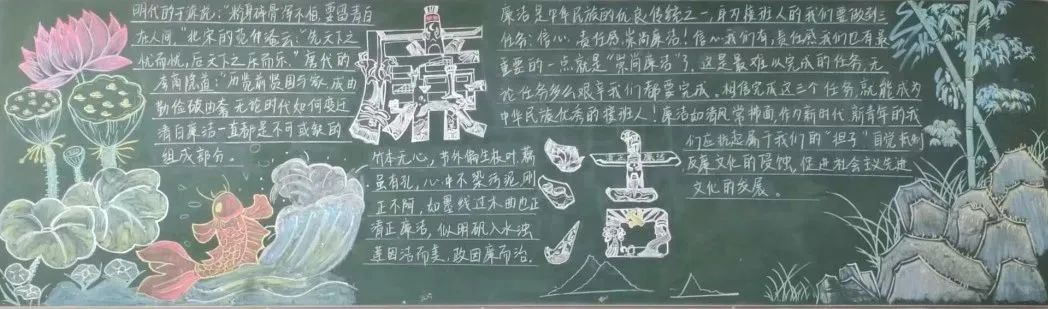 明代的于谦说："粉身碎骨浑不怕，要留清白
在人间。"北宋的范仲淹云："先天下之
忧而忧，后天下之乐而乐。"唐代的
李商隐道："历览前贤国与家，成由
勤俭破由奢。无论时代如何变迁
清白廉洁一直都是不可或缺的
组成部分。
廉
洁
竹本无心，节外偏生枝叶藕
虽有孔，心中不染污泥刚
正不阿，如墨线过木曲也正
清正廉洁，似明矾入水浊
莲因洁而美，政因廉而治。
廉洁是中华民族的优良传统之一，身为接班人的我们要做到三
任务：信心、责任感、崇尚廉洁！信心我们有，责任感我们也有最
重要的一点就是"崇尚廉洁"了，这是最难以完成的任务，无
论任务多么艰辛我们都要完成。相信完成这三个任务，就能成为
中华民族优秀的接班人！廉洁如清风常拂面，作为新时代新青年的我
们应挑起属于我们的"担子"自觉抵制
反廉文化的侵蚀，促进社会主义先进
文化的发展。